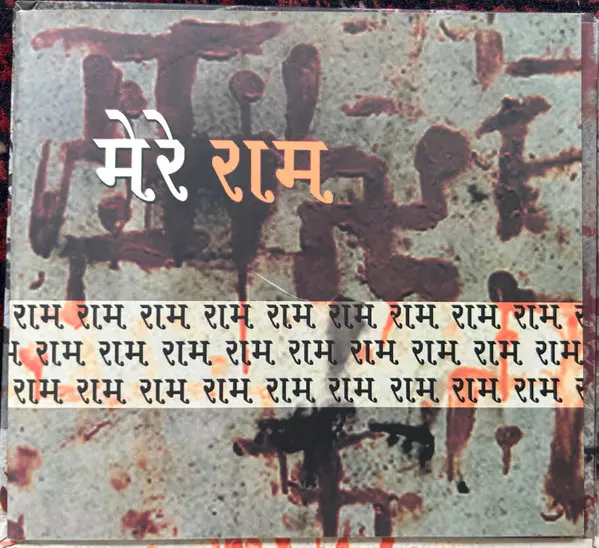 मेरे राम
राम राम राम राम राम राम राम राम राम
राम राम राम राम राम राम राम राम राम
राम राम राम राम राम राम राम राम राम